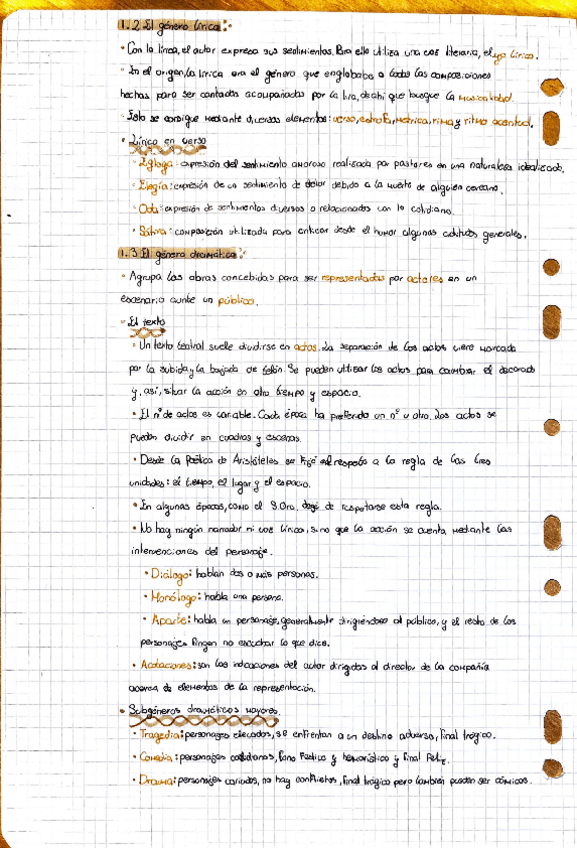 1.2 El género lírico:
· Con la lírica, el autor expresa sus sentimientos. Para ello utiliza una voz literaria, el yo lírico.
· En el origen, la lírica era el género que englobaba a todas las composiciones
hechas para ser cantadas acompañadas por la lira, de ahí que busque la musicalidad.
· Esto se consigue mediante diversos elementos: verso, estrofa, métrica, rima y ritmo acentual.
· Lírica en verso
· Égloga: expresión del sentimiento amoroso realizada por pastores en una naturaleza idealizada.
· Elegía: expresión de un sentimiento de dolor debido a la muerte de alguien cercano.
· Oda: expresión de sentimientos diversos o relacionados con lo cotidiano.
· Sátira: composición utilizada para criticar desde el humor algunas actitudes generales.
1.3 El género dramático:
· Agrupa las obras concebidas para ser representadas por actores en un
escenario ante un público.
· El texto
· Un texto teatral suele dividirse en actos. La separación de los actos viene marcada
por la subida y la bajada de telón. Se pueden utilizar los actos para cambiar el decorado
y, así, situar la acción en otro tiempo y espacio.
· El nº de actos es variable. Cada época ha preferido un nº u otro. Los actos se
pueden dividir en cuadros y escenas.
· Desde la Poética de Aristóteles se fijó el respeto a la regla de las tres
unidades: el tiempo, el lugar y el espacio.
· En algunas épocas, como el S.Oro, dejó de respetarse esta regla.
· No hay ningún narrador ni voz lírica, sino que la acción se cuenta mediante las
intervenciones del personaje.
· Diálogo: hablan dos o más personas.
· Monólogo: habla una persona.
· Aparte: habla un personaje, generalmente dirigiéndose al público, y el resto de los
personajes fingen no escuchar lo que dice.
· Acotaciones: son las indicaciones del autor dirigidas al director de la compañía
acerca de elementos de la representación.
· Subgéneros dramáticos mayores
· Tragedia: personajes elevados, se enfrentan a un destino adverso, final trágico.
· Comedia: personajes cotidianos, tono festivo y humorístico y final feliz.
· Drama: personajes variados, no hay conflictos, final trágico pero también pueden ser cómicos.